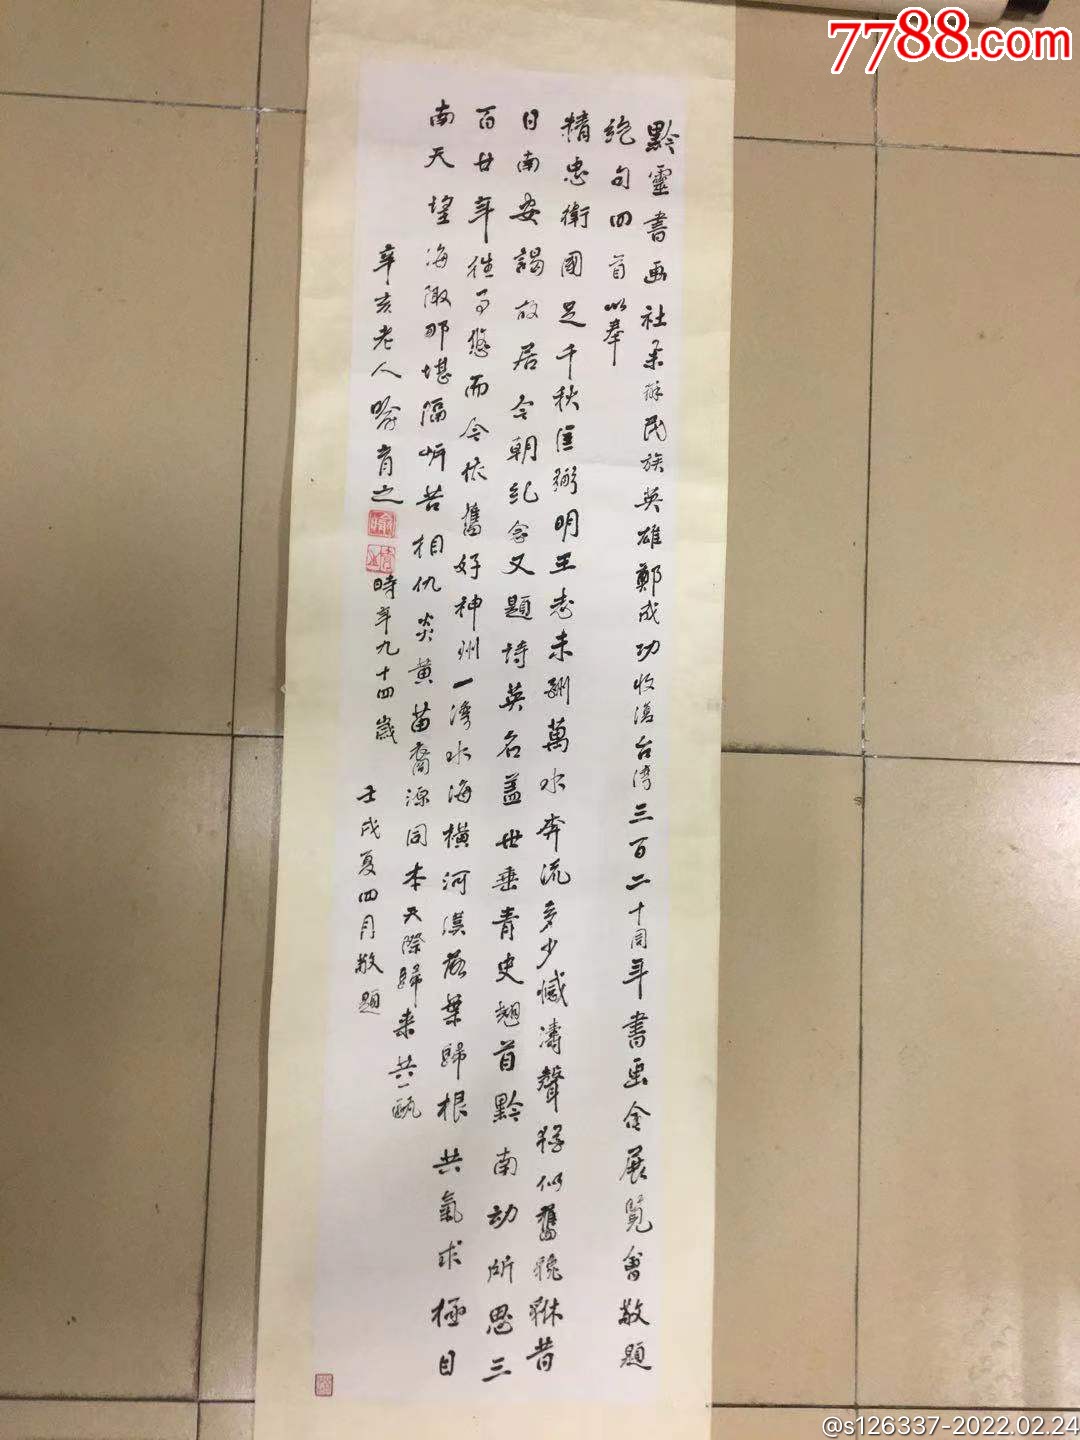 7788.com
黔靈書画社舉辦民族英雄鄭成功收復台湾三百二十周年書画金展览會敬題
绝句四首以奉
精忠衛國足千秋匡弼明王志未酬萬水奔流多少憾濤聲猶似舊貔貅昔
日南安謁故居今朝纪念又題詩英名蓋世垂青史翹首黔南动所思三
百廿年往事悠而今依舊好神州一湾水海横河漠落葉歸根共氣求極目
南天望海陬那堪隔岍苦相仇炎黄苗裔源同本天際歸来共一甌
辛亥老人喻育之
時年九十四歲
壬戌夏四月敬題
@s126337-2022.02.24